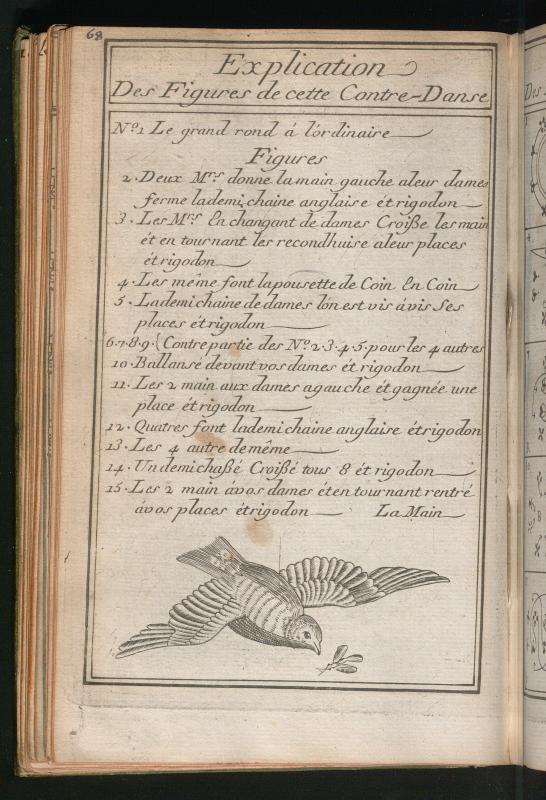 68
Explication
Des Figures de cette Contre-Danse
No. 1 Le grand rond á lórdinaire
Figures
2. Deux Mrs. donne la main gauche aleur dames
ferme lademi chaine anglaise ét rigodon
3. Les Mrs. En changant de dames Croiße les main
ét en tournant les recondhuise aleur places
ét rigodon
4. Les méme font lapousette de Coin En Coin
5. Lademi chaine de dames lón est vis ávis Ses
places ét rigodon
6.7.8.9.{Contre partie des No. 2.3.4.5. pour les 4 autres
10. Ballansé devant vos dames ét rigodon
11. Les 2 main aux dames agauche ét gagnée une
place ét rigodon
12. Quatres font lademi chaine anglaise ét rigodon
13. Les 4 autre deméme
14. Un demi chaßé Croißé tous 8 ét rigodon
15. Les 2 main ávos dames ét en tournant rentré
ávos places ét rigodon La Main
Des